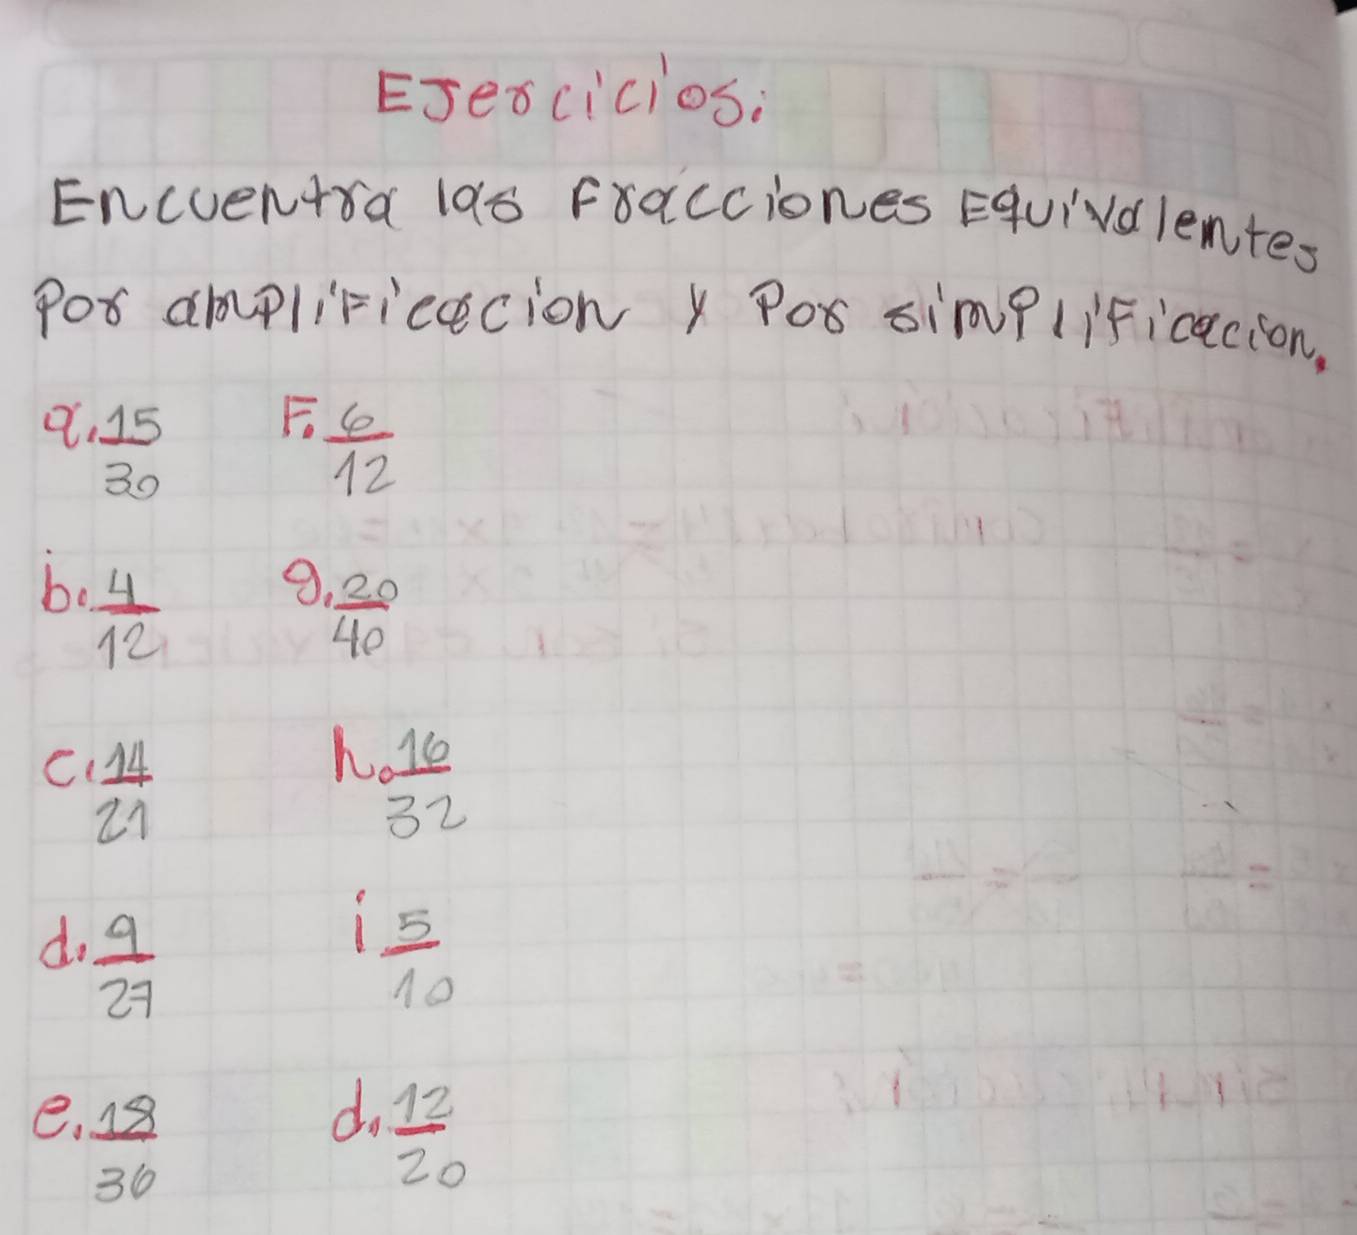 EJercicios:
Encuentra las Fracciones Equivalentes
Por amplificacion y Por simplificacion.
a. 15/30 F. 6/12
b. 4/12 g. 20/40
c. 14/21 h. 16/32
d. 9/27 i 5/10
e. 18/36 d. 12/20